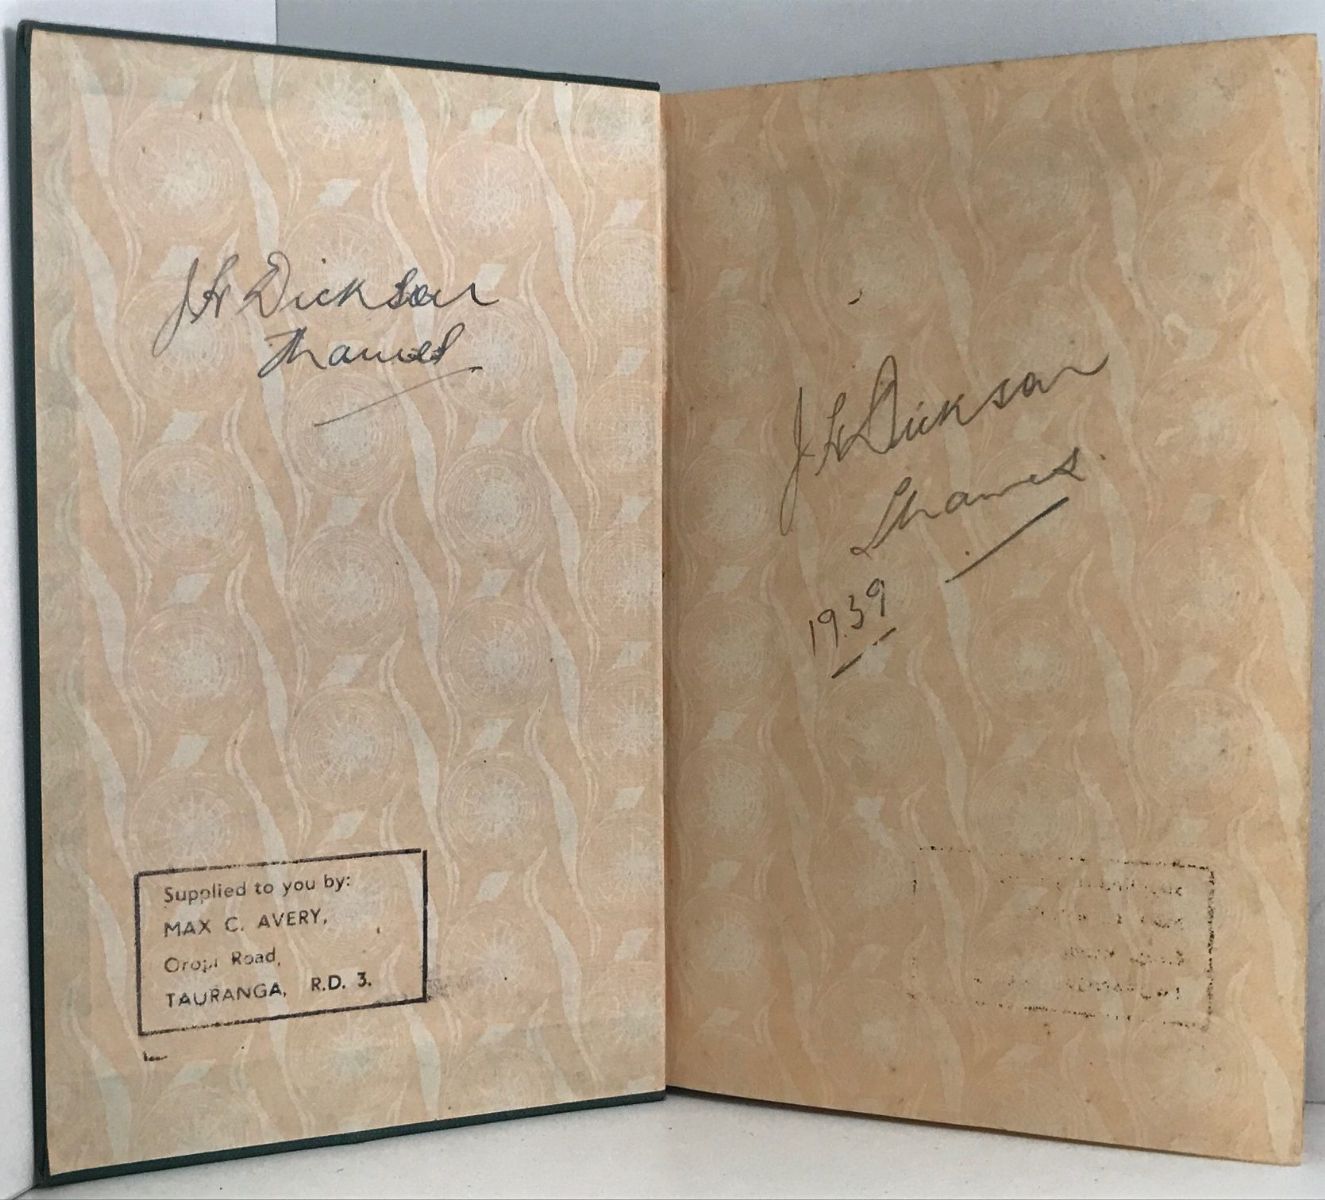 J H Dickson
Thames
Supplied to you by:
MAX C. AVERY,
Oropi Road,
TAURANGA, R.D. 3.
J H Dickson
Thames
1939